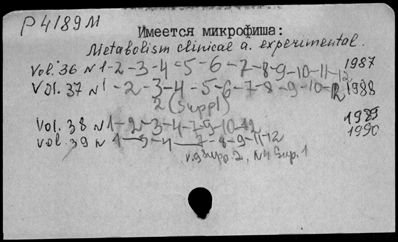 P4189M
Имеется микрофиша:
Metabolism clinical a. experimental.
Vol. 36 N 1-2-3-4-5-6-7-8-9-10-11-12 1987
Vol. 37 N 1-2-3-4-5-6-7-8-9-10-12 1988
2 (Suppl)
Vol. 38 N 1-2-3-4-7-9-10-12 1989
Vol. 39 N 1-3-4-7-8-9-11-12 1990
v.9 Supp. 2, N4 Sup. 1